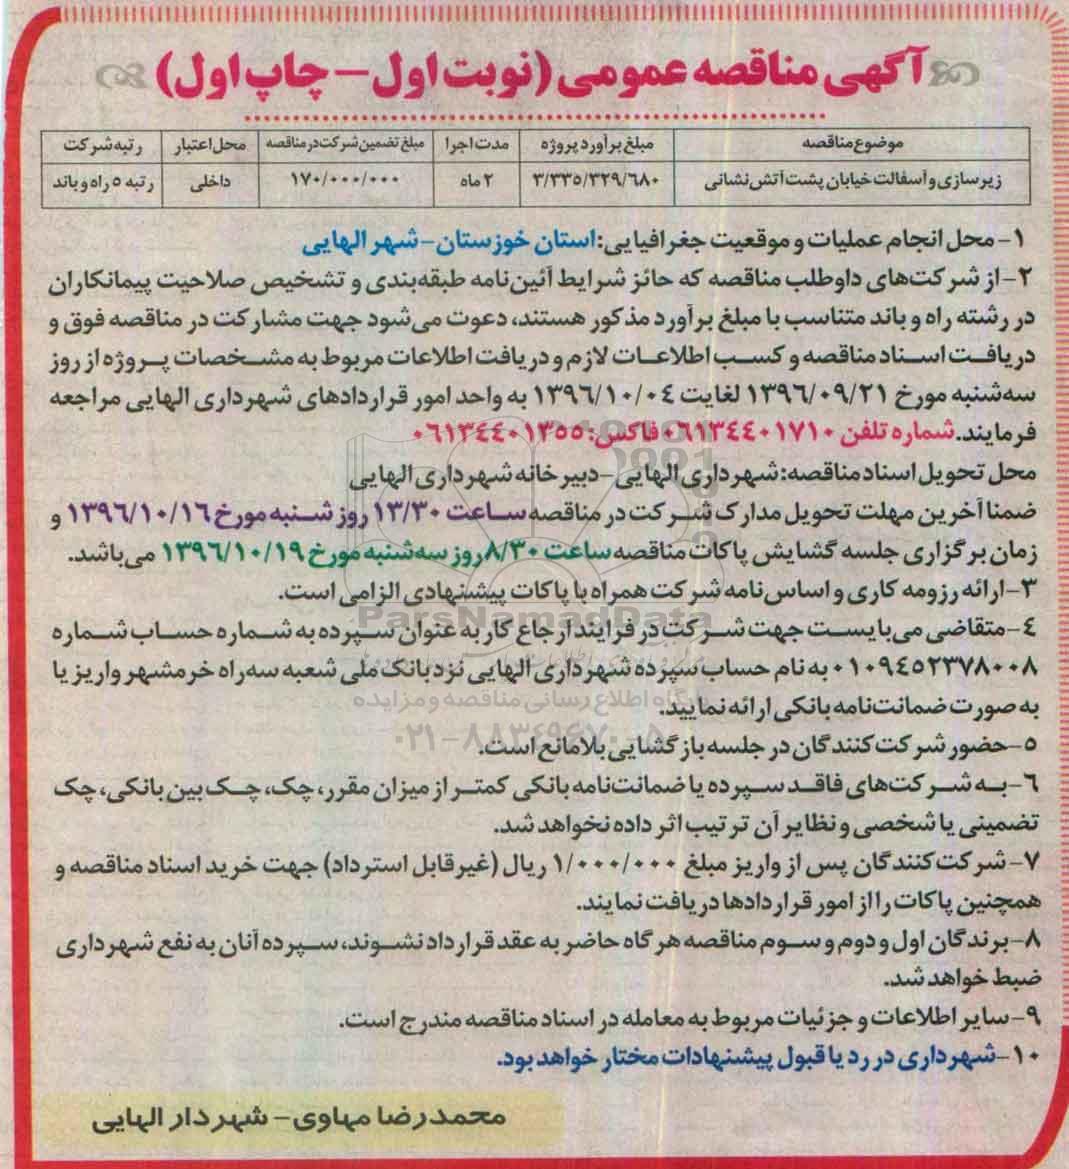 آگهی مناقصه عمومی (نوبت اول – چاپ اول)
موضوع مناقصه | مبلغ برآورد پروژه | مدت اجرا | مبلغ تضمین شرکت در مناقصه | محل اعتبار | رتبه شرکت
زیرسازی و آسفالت خیابان پشت آتش نشانی | ۳/۳۳۵/۳۲۹/۶۸۰ | ۲ ماه | ۱۷۰/۰۰۰/۰۰۰ | داخلی | رتبه ۵ راه و باند
۱- محل انجام عملیات و موقعیت جغرافیایی: استان خوزستان- شهر الهایی
۲- از شرکت‌های داوطلب مناقصه که حائز شرایط آئین‌نامه طبقه‌بندی و تشخیص صلاحیت پیمانکاران
در رشته راه و باند متناسب با مبلغ برآورد مذکور هستند، دعوت می‌شود جهت مشارکت در مناقصه فوق و
دریافت اسناد مناقصه و کسب اطلاعات لازم و دریافت اطلاعات مربوط به مشخصات پروژه از روز
سه‌شنبه مورخ ۱۳۹۶/۰۹/۲۱ لغایت ۱۳۹۶/۱۰/۰۴ به واحد امور قراردادهای شهرداری الهایی مراجعه
فرمایند. شماره تلفن ۰۶۱۳۴۴۰۱۷۱۰ فاکس: ۰۶۱۳۴۴۰۱۳۵۵
محل تحویل اسناد مناقصه: شهرداری الهایی- دبیرخانه شهرداری الهایی
ضمنا آخرین مهلت تحویل مدارک شرکت در مناقصه ساعت ۱۳/۳۰ روز شنبه مورخ ۱۳۹۶/۱۰/۱۶ و
زمان برگزاری جلسه گشایش پاکات مناقصه ساعت ۸/۳۰ روز سه‌شنبه مورخ ۱۳۹۶/۱۰/۱۹ می‌باشد.
۳- ارائه رزومه کاری و اساس‌نامه شرکت همراه با پاکات پیشنهادی الزامی است.
ParsNamadData
۴- متقاضی می‌بایست جهت شرکت در فرایند ارجاع کار به عنوان سپرده به شماره حساب شماره
۰۱۰۹۴۵۲۳۷۸۰۰۸ به نام حساب سپرده شهرداری الهایی نزد بانک ملی شعبه سه‌راه خرمشهر واریز یا
پایگاه اطلاع رسانی مناقصه و مزایده
به صورت ضمانت‌نامه بانکی ارائه نمایید.
۰۲۱-۸۸۳۴۹۶۷۰-۵
۵- حضور شرکت کنندگان در جلسه بازگشایی بلامانع است.
۶- به شرکت‌های فاقد سپرده یا ضمانت‌نامه بانکی کمتر از میزان مقرر، چک، چک بین بانکی، چک
تضمینی یا شخصی و نظایر آن ترتیب اثر داده نخواهد شد.
۷- شرکت کنندگان پس از واریز مبلغ ۱/۰۰۰/۰۰۰ ریال (غیرقابل استرداد) جهت خرید اسناد مناقصه و
همچنین پاکات را از امور قراردادها دریافت نمایند.
۸- برندگان اول و دوم و سوم مناقصه هرگاه حاضر به عقد قرارداد نشوند، سپرده آنان به نفع شهرداری
ضبط خواهد شد.
۹- سایر اطلاعات و جزئیات مربوط به معامله در اسناد مناقصه مندرج است.
۱۰- شهرداری در رد یا قبول پیشنهادات مختار خواهد بود.
محمدرضا مهاوی- شهردار الهایی